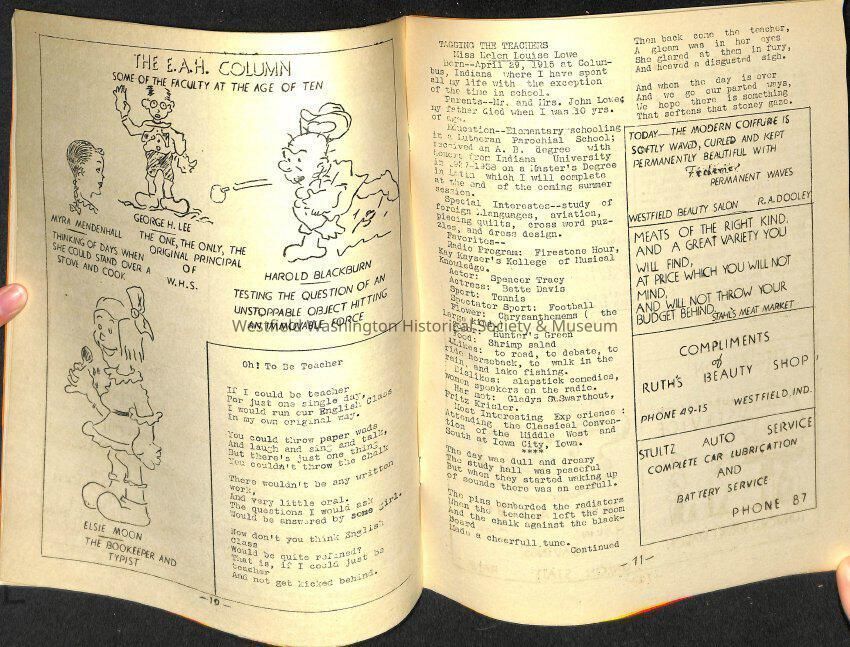 THE E.A.H. COLUMN
SOME OF THE FACULTY AT THE AGE OF TEN
MYRA MENDENHALL
THINKING OF DAYS WHEN
SHE COULD STAND OVER A
STOVE AND COOK
GEORGE H. LEE
THE ONE, THE ONLY, THE
ORIGINAL PRINCIPAL
OF
W.H.S.
HAROLD BLACKBURN
TESTING THE QUESTION OF AN
UNSTOPPABLE OBJECT HITTING
AN IMMOVABLE FORCE
ELSIE MOON
THE BOOKEEPER AND
TYPIST
Oh! To Be Teacher
If I could be teacher
For just one single day,
I would run our English Class
In my own original way.
You could throw paper wads
And laugh and sing and talk,
But there's just one thing
You couldn't throw the chalk
There wouldn't be any written
work,
And very little oral.
The questions I would ask
Would be answered by some girl.
Now don't you think English
Class
Would be quite refined?
That is, if I could just be
teacher
And not get kicked behind.
-10-
TAGGING THE TEACHERS
Miss Helen Louise Lowe
Born--April 29, 1915 at Colum-
bus, Indiana where I have spent
all my life with the exception
of the time in school.
Parents--Mr. and Mrs. John Lowe;
my father died when I was 10 yrs.
of age.
Education--Elementary schooling
in a Lutheran Parochial School;
received an A. B. degree with
from Indiana University
on a Master's Degree
in Latin which I will complete
at the end of the coming summer
session.
Special Interests--study of
foreign languages, aviation,
piecing quilts, cross word puz-
zles, and dress design.
Favorites--
Radio Program: Firestone Hour,
Kay Kayser's Kollege of Musical
Knowledge.
Actor: Spencer Tracy
Actress: Bette Davis
Sport: Tennis
Spectator Sport: Football
Flower: Chrysanthemems ( the
large
Hunter's Green
Food: Shrimp salad
Likes: to read, to debate, to
ride horseback, to walk in the
rain, and lake fishing.
Dislikes: slapstick comedies,
women speakers on the radio.
Has met: Gladys Swarthout,
Fritz Krisler.
Most Interesting Exp erience :
Attending the Classical Conven-
tion of the Middle West and
South at Iowa City, Iowa.
****
The day was dull and dreary
The study hall was peaceful
But when they started waking up
Of sounds there was an earfull.
The pins bombarded the radiators
When the teacher left the room
And the chalk against the black-
Board
Made a cheerfull tune.
Continued
Then back come the teacher,
A gleam was in her eyes
She glared at them in fury,
And heaved a disgusted sigh.
And when the day is over
And we go our parted ways,
We hope there is something
That softens that stoney gaze.
TODAY—THE MODERN COIFFURE IS
SOFTLY WAVED, CURLED AND KEPT
PERMANENTLY BEAUTIFUL WITH
PERMANENT WAVES
WESTFIELD BEAUTY SALON R.A. DOOLEY
MEATS OF THE RIGHT KIND,
AND A GREAT VARIETY YOU
WILL FIND,
AT PRICE WHICH YOU WILL NOT
MIND,
AND WILL NOT THROW YOUR
BUDGET BEHIND. STAHL'S MEAT MARKET
COMPLIMENTS
of
RUTH'S BEAUTY SHOP
PHONE 49-15 WESTFIELD, IND.
STULTZ AUTO SERVICE
COMPLETE CAR LUBRICATION
AND
BATTERY SERVICE
PHONE 87
-11-
Westfield Washington Historical Society & Museum